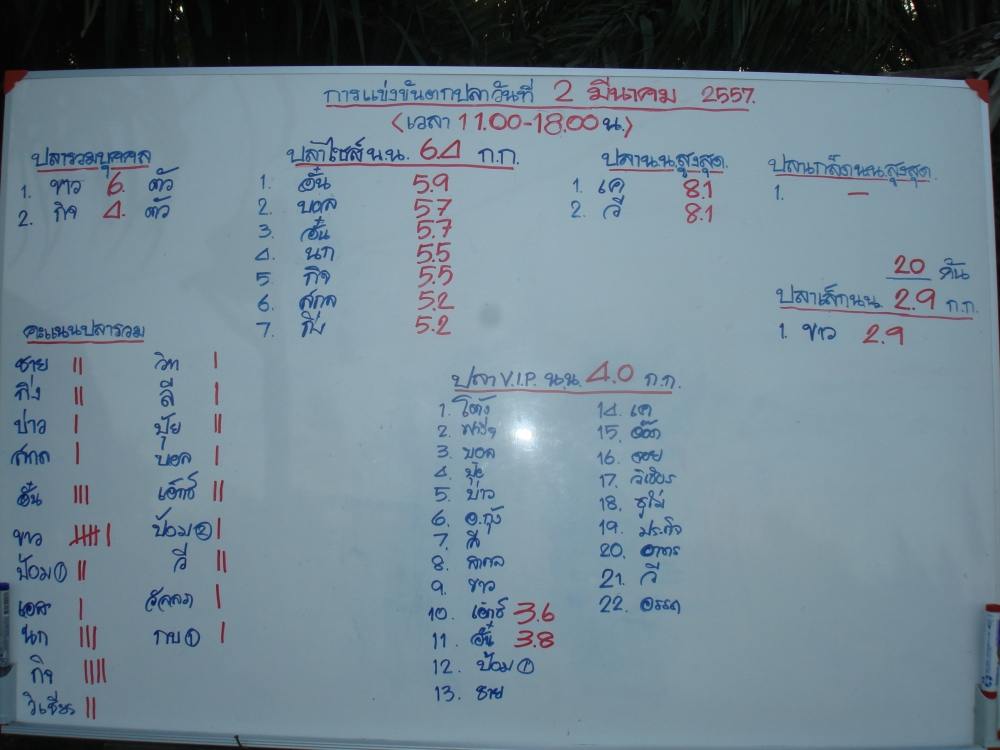 การแข่งขันตกปลาวันที่ 2 มีนาคม 2557.
(เวลา 11.00-18.00 น.)
ปลารวมบุคคล
1. ขาว 6. ตัว
2. กิจ 4. ตัว
ปลาไซส์ น.น. 6.4 ก.ก.
1. อั๋น 5.9
2. บอล 5.7
3. อั๋น 5.7
4. นก 5.5
5 กิจ 5.5
6. สกล 5.2
7. กิ่ง 5.2
ปลา นน. สูงสุด.
1. เค 8.1
2. วี 8.1
ปลามีเกล็ด นน. สูงสุด.
1. –
20 คัน
ปลาเล็ก นน. 2.9 ก.ก.
1. ขาว 2.9
คะแนนปลารวม
ชาย ||
กิ่ง ||
บ่าว |
สกล |
อั๋น |||
ขาว |||||​|
ป้อม ① ||
เอส |
นก |||
กิจ ||||
วิเชียร ||
วิทา |
ลี |
ปุ้ย ||
บอล |
เอ็กซ์ ||
ป้อม ② |
วี ||
|
กบ ① |
ปลา V.I.P. น.น. 4.0 ก.ก.
1. โต้ง
2.
3. บอล
4. ปุ้ย
5. บ่าว
6. อ.กุ้ง
7. ลี
8. สกล
9. ขาว
10. เอ็กซ์ 3.6
11. อั๋น 3.8
12. ป้อม ①
13. ชาย
14. เค
15. อ๊อด
16. ออย
17. วิเชียร
18.
19. ประกิจ
20. อาทร
21. วี
22. อรรถ